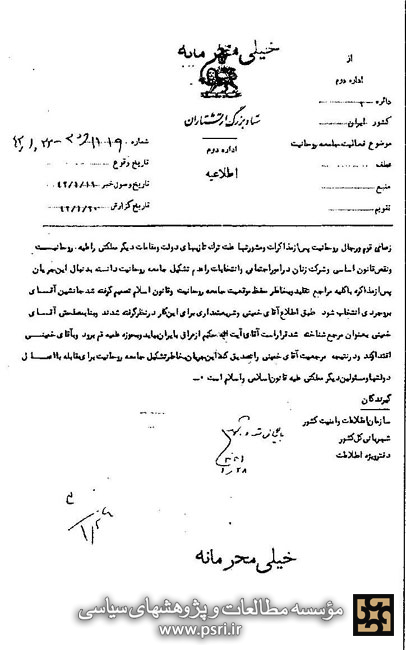 خیلی محرمانه
از
اداره دوم
دائره
کشور ایران
موضوع فعالیت جامعه روحانیت
عطف
منبع
تقویم
ستاد بزرگ ارتشتاران
اداره دوم
اطلاعیه
شماره
تاریخ وقوع
تاریخ وصول خبر
تاریخ گزارش
زعمای قوم و رجال روحانیت پس از مذاکرات و مشورتها علت ترک تازیهای دولت و مقامات دیگر مملکتی را علیه روحانیت
و نقض قانون اساسی و شرکت زنان در امور اجتماعی و انتخابات را عدم تشکیل جامعه روحانیت دانسته بدنبال این جریان
پس از مذاکره با کلیه مراجع تقلید و بخاطر حفظ موقعیت جامعه روحانیت و قانون اسلام تصمیم گرفته شد جانشین آقای
بروجردی انتخاب شود طبق اطلاع آقای خمینی و شریعتمداری برای این کار در نظر گرفته شدند و بنا بمصلحتی آقای
خمینی بعنوان مرجع شناخته شد قرار است آقای آیت اله حکیم از عراق بایران بیاید و بحوزه علمیه قم برود و بآقای خمینی
اقتدا کند و در نتیجه مرجعیت آقای خمینی را تصدیق کند این جریان بخاطر تشکیل جامعه روحانیت برای مقابله با اعمال
دولتها و مسئولین دیگر مملکتی علیه قانون اساسی و اسلام است
گیرندگان
سازمان اطلاعات و امنیت کشور
شهربانی کل کشور
دفتر ویژه اطلاعات
خیلی محرمانه
مؤسسه مطالعات و پژوهشهای سیاسی
www.psri.ir